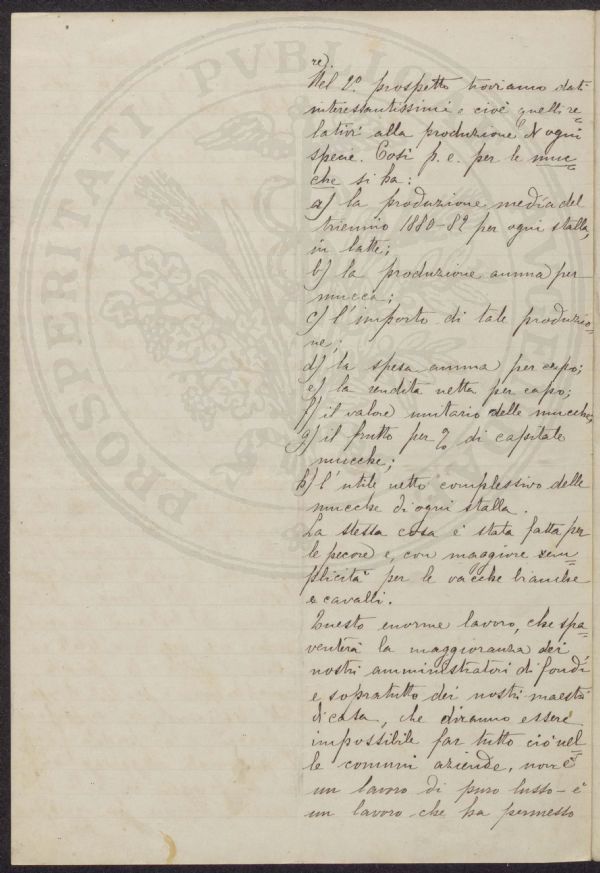 re).
Nel 2º. prospetto troviamo dati
interessantissimi e cioè quelli re=
lativi alla produzione d'ogni
specie. Così p. e. per le muc=
che si ha:
a) la produzione media del
triennio 1880-82 per ogni stalla,
in latte;
b) la produzione annua per
mucca;
c) l'importo di tale produzio=
ne;
d) la spesa annua per capo;
e) la rendita netta per capo;
f) il valore unitario delle mucche;
g) il frutto per % di capitale
mucche;
h) l'utile netto complessivo delle
mucche di ogni stalla.
La stessa cosa è stata fatta per
le pecore e, con maggiore sem=
plicità per le vacche bianche
e cavalli.
Questo enorme lavoro, che spa=
venterà la maggioranza dei
nostri amministratori di fondi
e sopratutto dei nostri maestri
di casa, che diranno essere
impossibile far tutto ciò nel=
le comuni aziende, non è
un lavoro di puro lusso - è
un lavoro che ha permesso
PROSPERITATI PVBLICAE